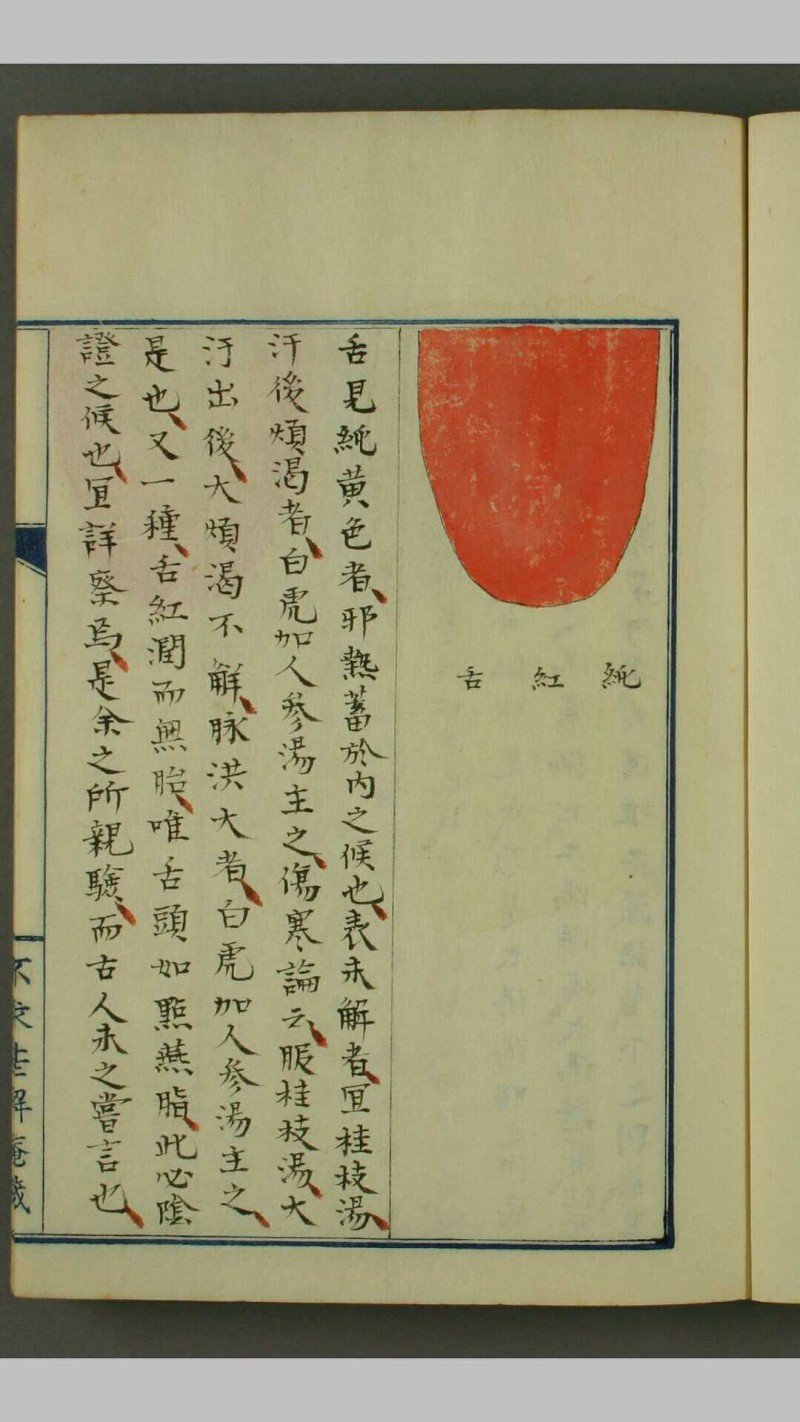 純紅舌
舌見純黄色者、邪熱蓄於内之候也、表未解者、冝桂枝湯、
汗後煩渴者、白虎加人參湯主之、傷寒論云、服桂枝湯、大
汗出後、大煩渴不解、脉洪大者、白虎加人參湯主之、
是也、又一種、舌紅潤而無胎、唯舌頭如點燕脂、此必陰
證之候也、冝詳察焉、是余之所親驗、而古人未之嘗言也、
解庵藏